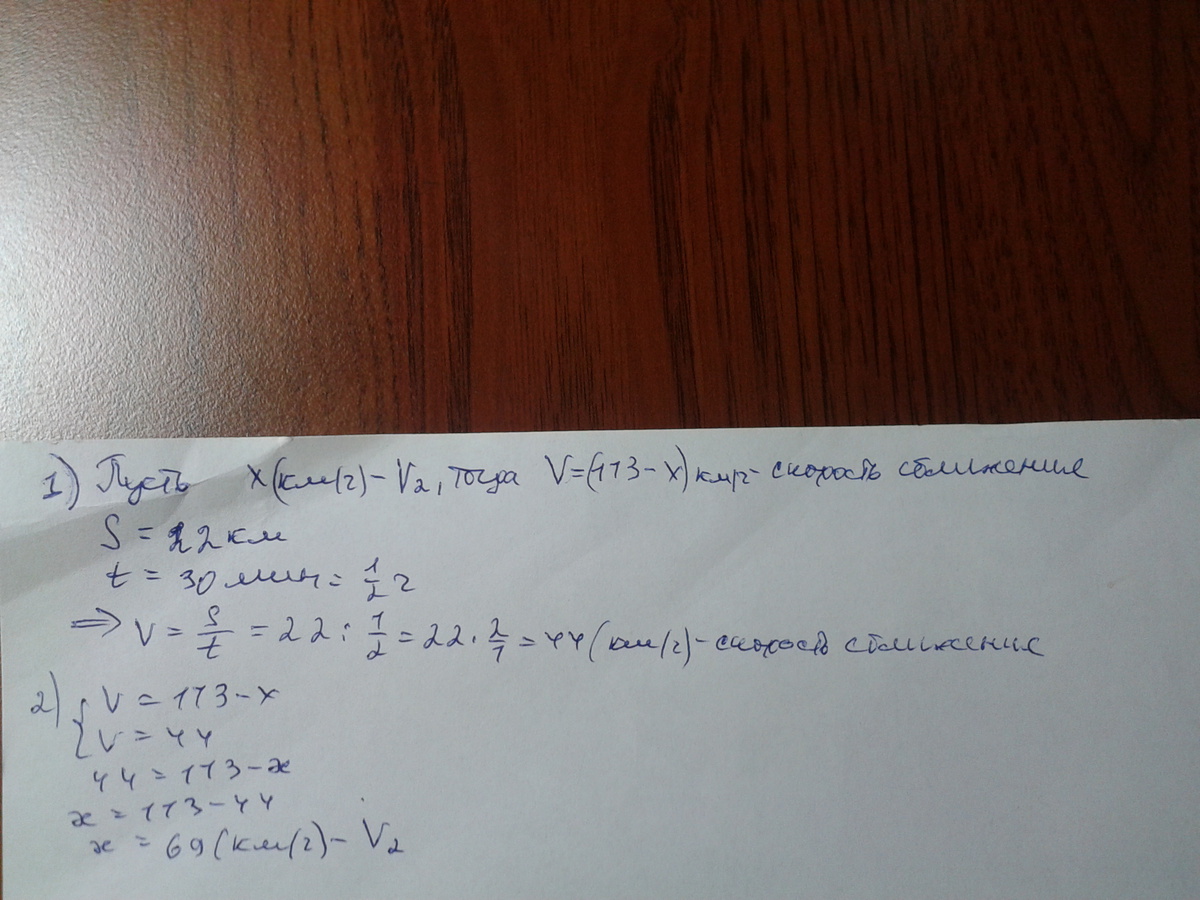 1) Пусть x(км/ч) – V₂, тогда V=(113–x) км/ч – скорость сближения
S = 22 км
t = 30 мин = 1/2 ч
⇒ V = S/t = 22 : 1/2 = 22 · 2/1 = 44 (км/ч) – скорость сближения
2) { V = 113 – x
V = 44
44 = 113 – x
x = 113 – 44
x = 69 (км/ч) – V₂